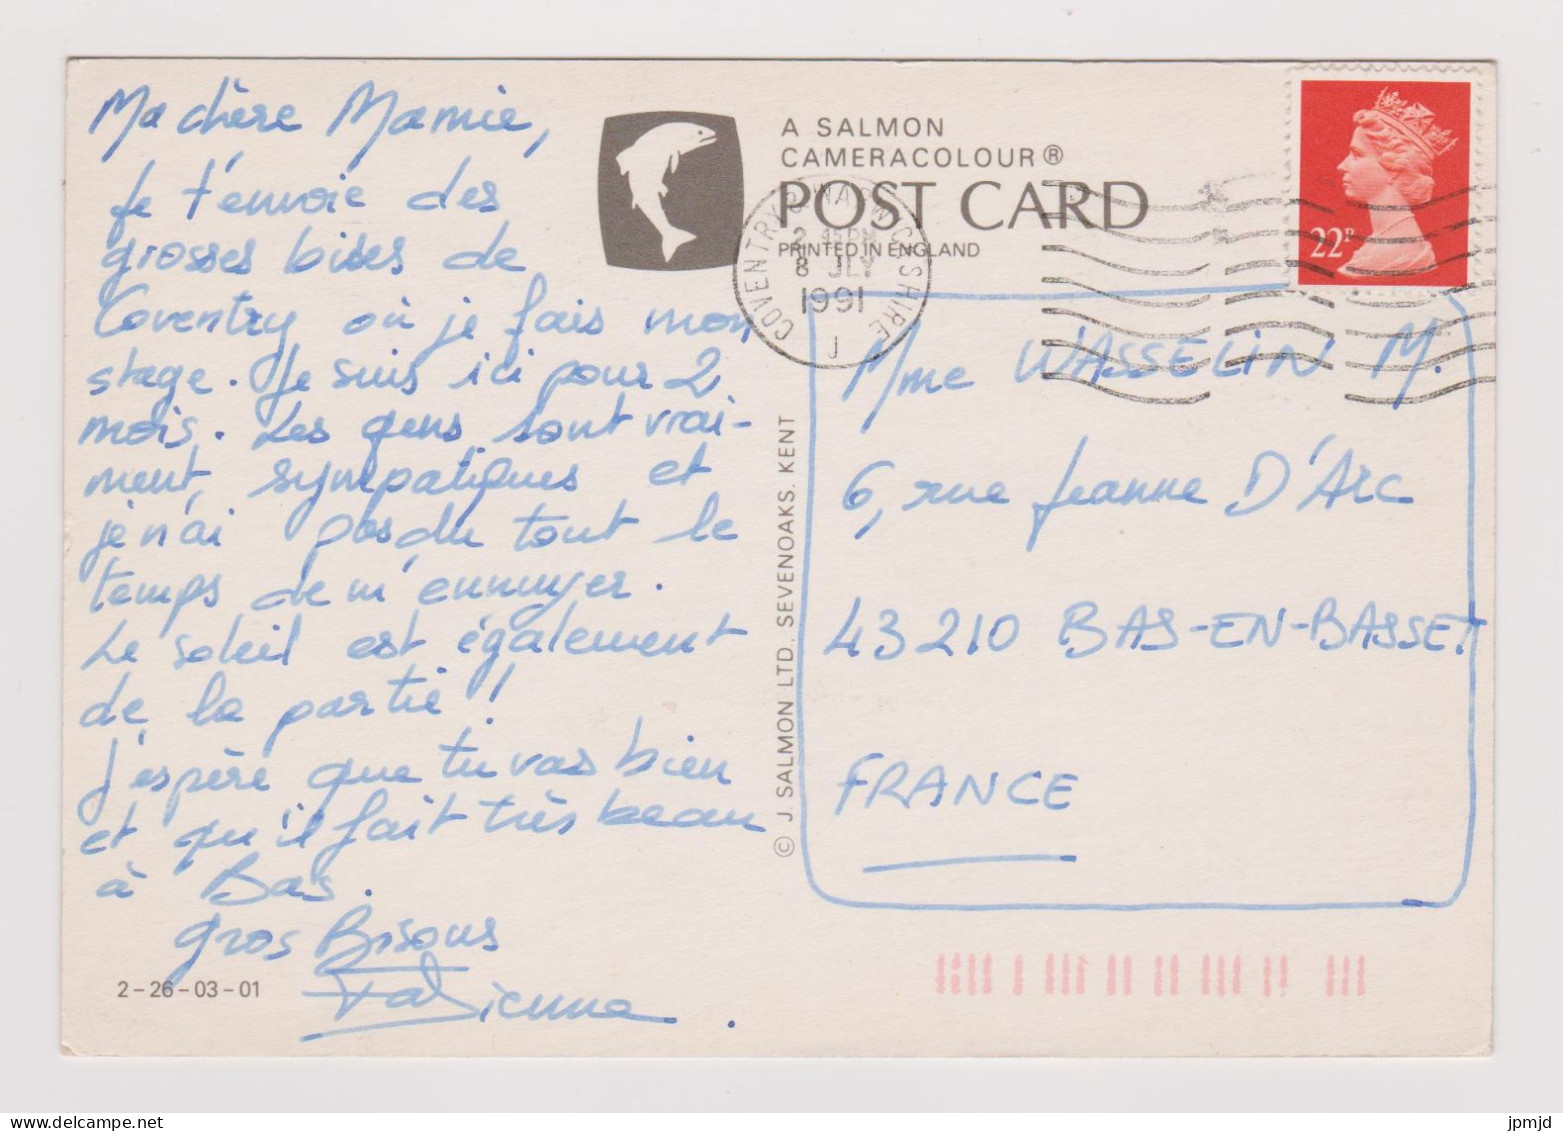 Ma chère Mamie,
Je t'envoie des
grosses bises de
Coventry où je fais mon
stage. Je suis ici pour 2
mois. Les gens sont vrai-
ment sympatiques et
je n'ai pas du tout le
temps de m'ennuyer.
Le soleil est également
de la partie !
J'espère que tu vas bien
et qu'il fait très beau
à Bas.
Gros Bisous
Fabienne.
2-26-03-01
A SALMON
CAMERACOLOUR®
POST CARD
PRINTED IN ENGLAND
COVENTRY & WARWICKSHIRE
2 45PM
8 JLY
1991
J
22P
© J. SALMON LTD. SEVENOAKS. KENT
Mme WASSELIN M.
6, rue Jeanne D'Arc
43210 BAS-EN-BASSET
FRANCE
jpmjd